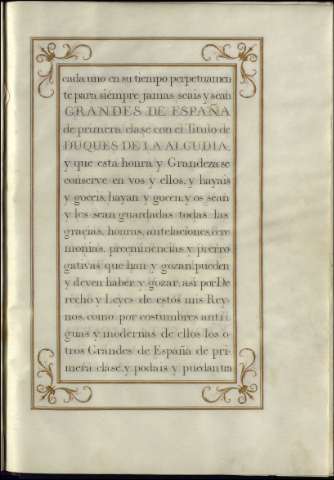 cada uno en su tiempo perpetuamen
te para siempre jamas seais y sean
GRANDES DE ESPAÑA
de primera clase con el Titulo de
DUQUES DE LA ALCUDIA,
y que esta honra y Grandeza se
conserve en vos y ellos, y hayais
y goceis, hayan y gocen, y os sean
y les sean guardadas todas las
gracias, honras, antelaciones, cere
monias, preeminencias y prerro
gativas que han y gozan, pueden
y deven haber y gozar, asi por De
recho y Leyes de estos mis Rey-
nos, como por costumbres anti
guas y modernas de ellos los o
tros Grandes de España de pri-
mera clase, y podais y puedan tra